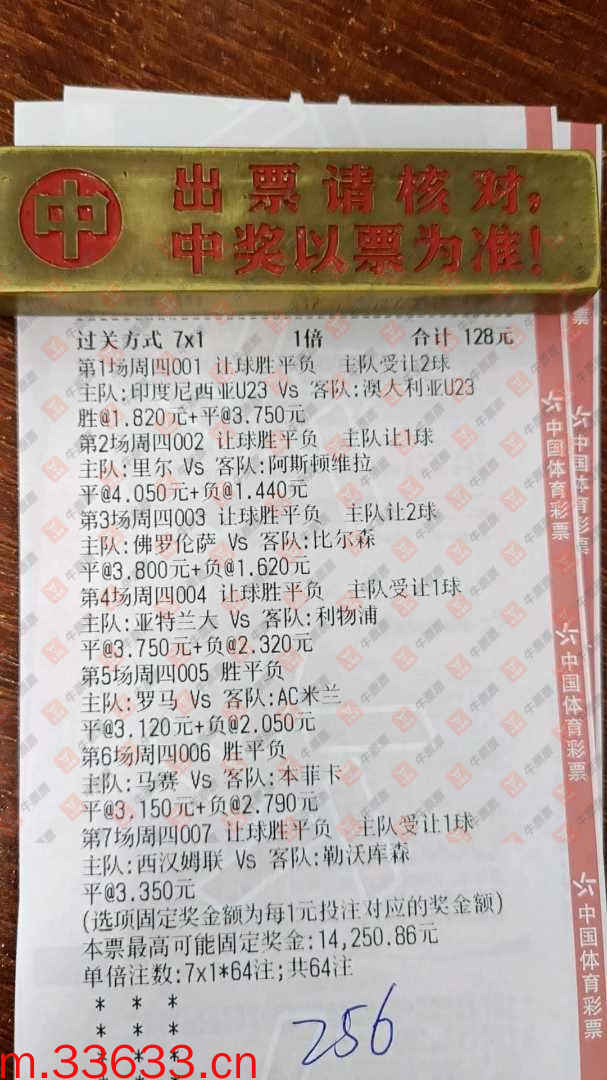 中
出票请核对,
中奖以票为准!
过关方式 7x1 1倍 合计 128元
第1场周四001 让球胜平负 主队受让2球
主队:印度尼西亚U23 Vs 客队:澳大利亚U23
胜@1.820元+平@3.750元
第2场周四002 让球胜平负 主队让1球
主队:里尔 Vs 客队:阿斯顿维拉
平@4.050元+负@1.440元
第3场周四003 让球胜平负 主队让2球
主队:佛罗伦萨 Vs 客队:比尔森
平@3.800元+负@1.620元
第4场周四004 让球胜平负 主队受让1球
主队:亚特兰大 Vs 客队:利物浦
平@3.750元+负@2.320元
第5场周四005 胜平负
主队:罗马 Vs 客队:AC米兰
平@3.120元+负@2.050元
第6场周四006 胜平负
主队:马赛 Vs 客队:本菲卡
平@3.150元+负@2.790元
第7场周四007 让球胜平负 主队受让1球
主队:西汉姆联 Vs 客队:勒沃库森
平@3.350元
(选项固定奖金额为每1元投注对应的奖金额)
本票最高可能固定奖金:14,250.86元
单倍注数:7x1*64注;共64注
* * *
* * *
* * *
256
m.33633.cn
中国体育彩票
中国体育彩票
中国体育彩票
中国体育彩票
票